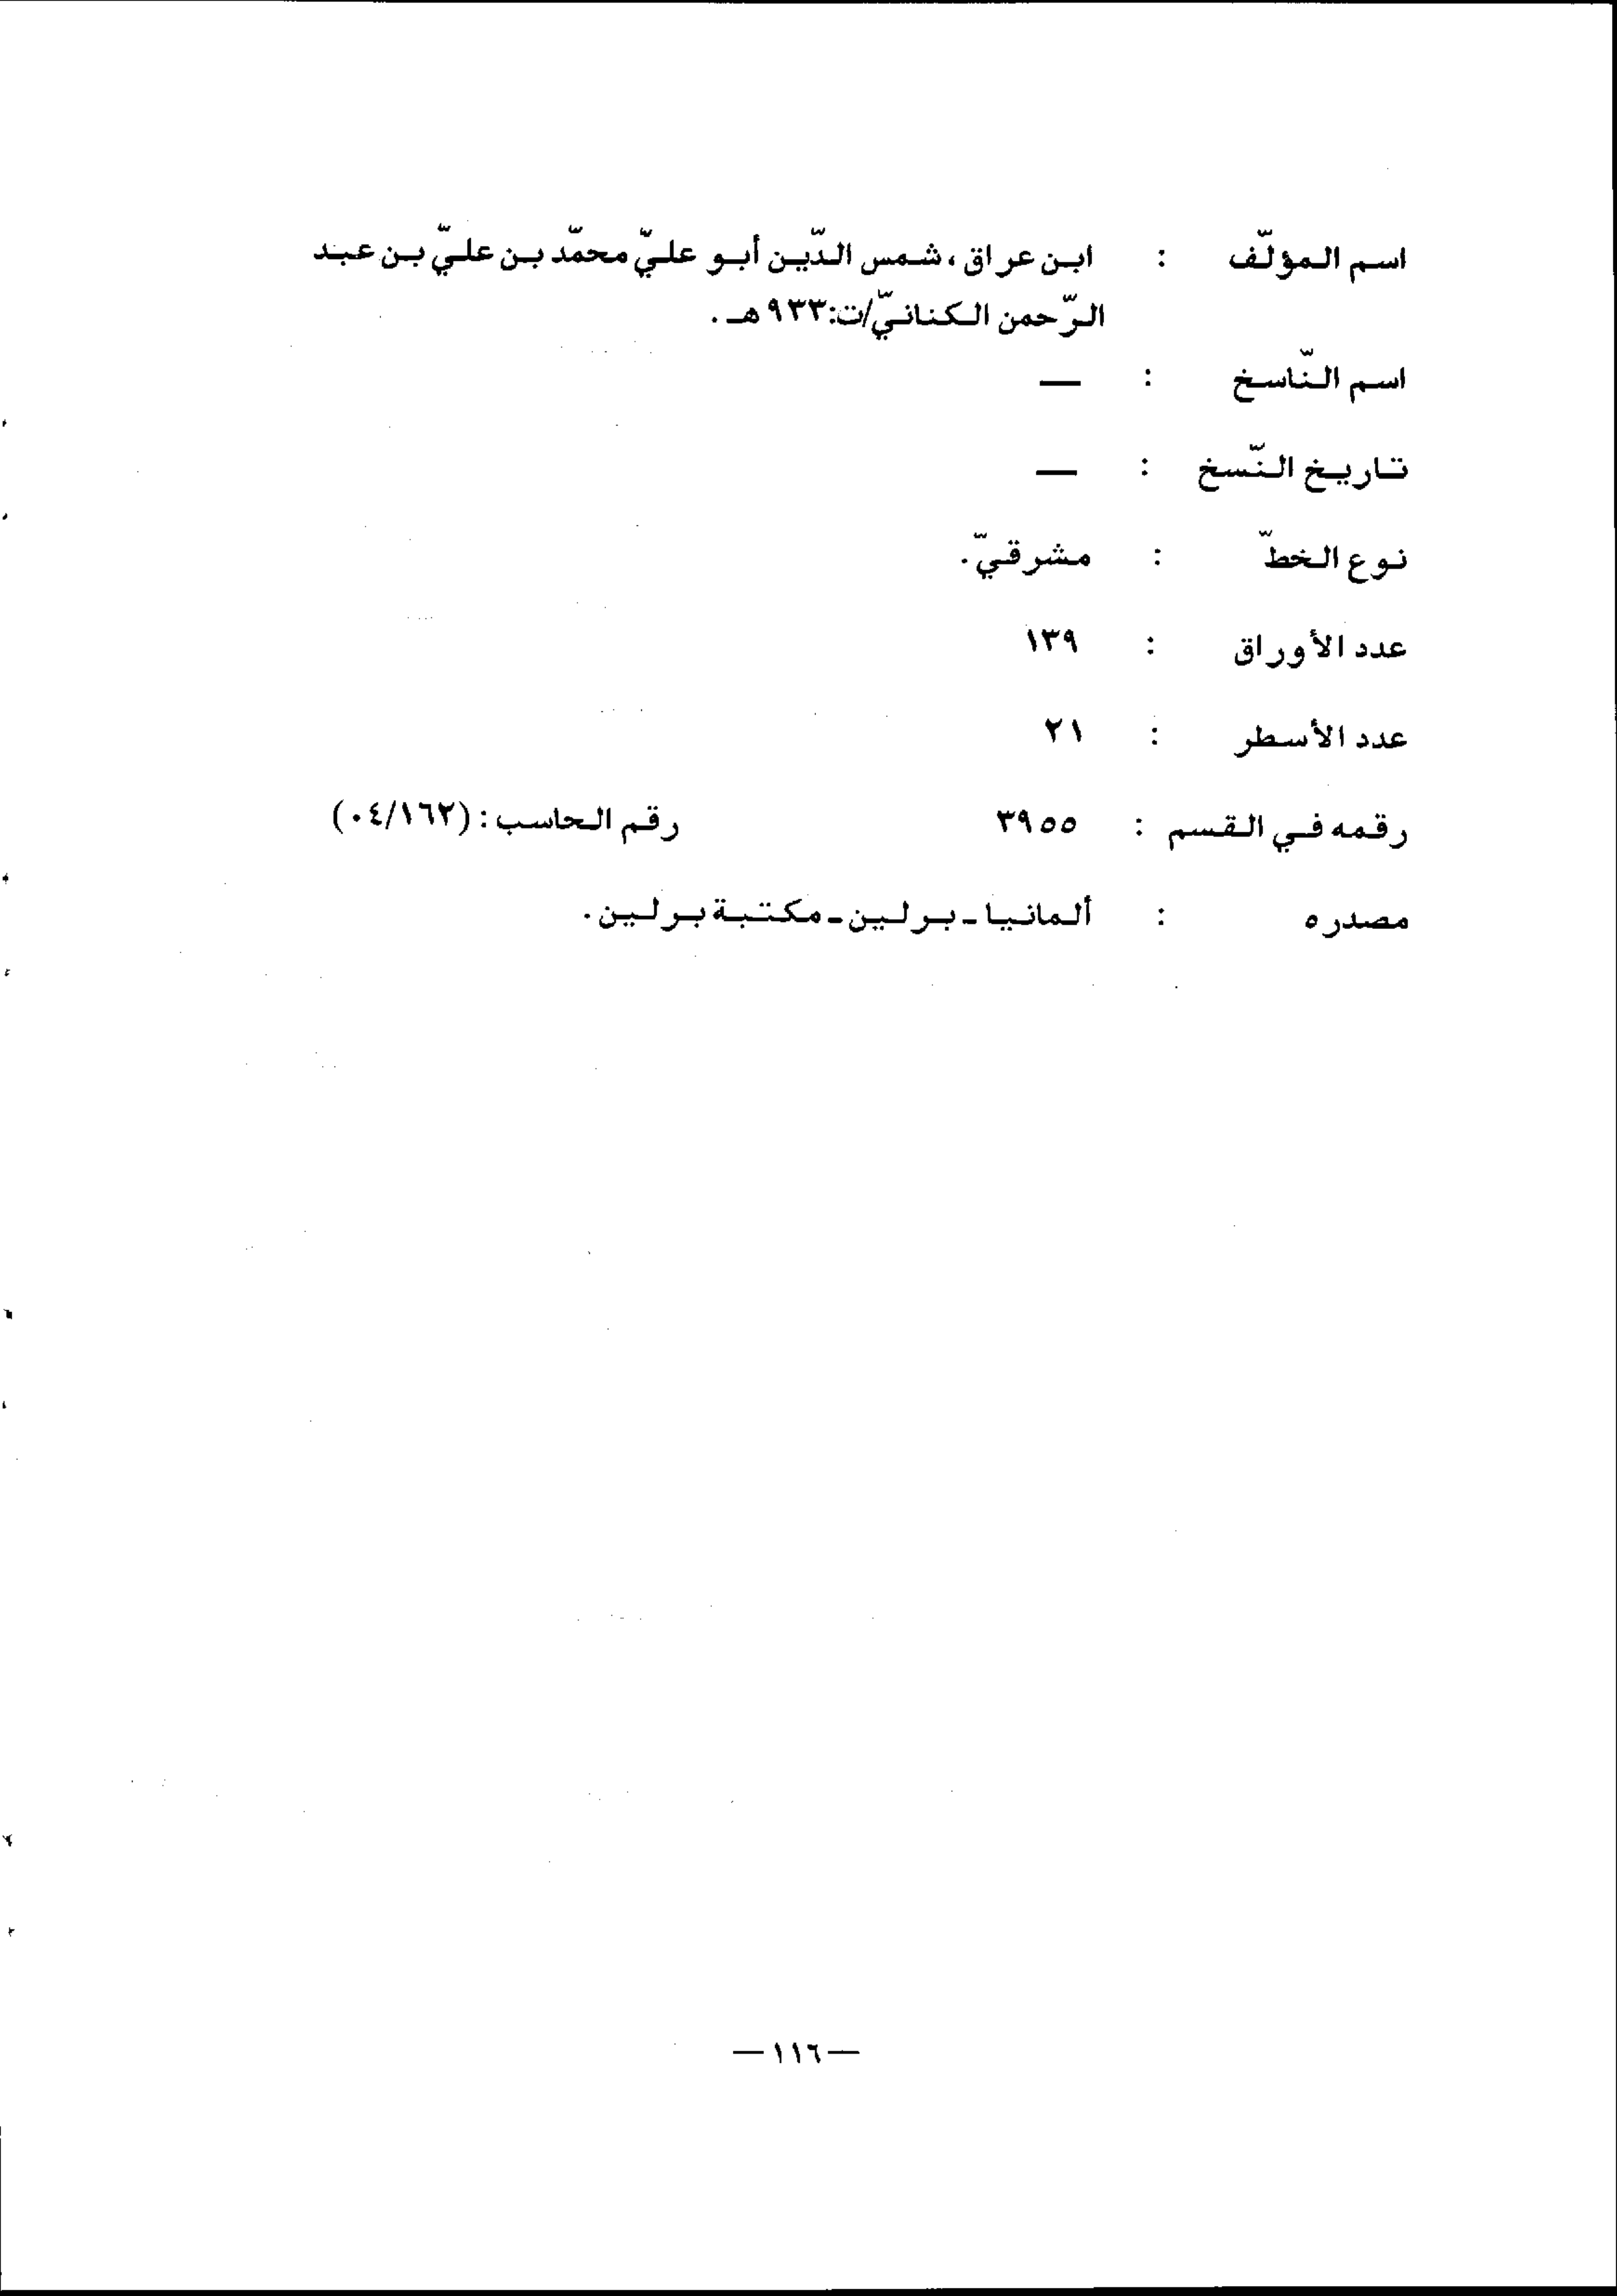 اسم المؤلّف : ابن عراق، شمس الدّين أبو عليّ محمّد بن عليّ بن عبد
الرّحمن الكنانيّ/ت:٩٣٣هـ .
اسم النّاسخ : —
تاريخ النّسخ : —
نوع الخطّ : مشرقيّ.
عدد الأوراق : ١٣٩
عدد الأسطر : ٢١
رقمه في القسم : ٣٩٥٥ رقم الحاسب: (٠٤/١٦٢)
مصدره : ألمانيا - برلين - مكتبة برلين.
—١١٦—